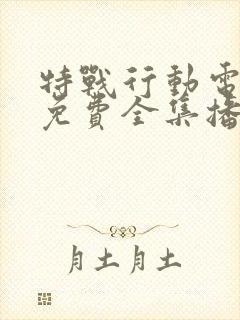 特戰行動電
免費全集播
月土月土